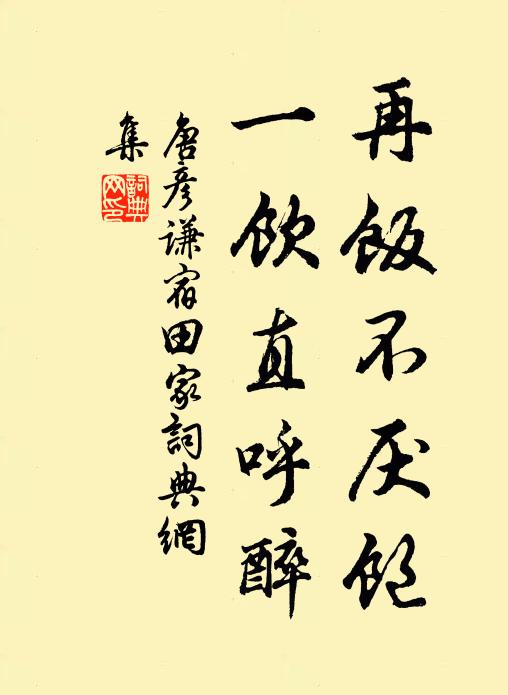 再飯不厌飽
一飲直呼醉
唐彦谦宿田家詞典網
集
詞典網印